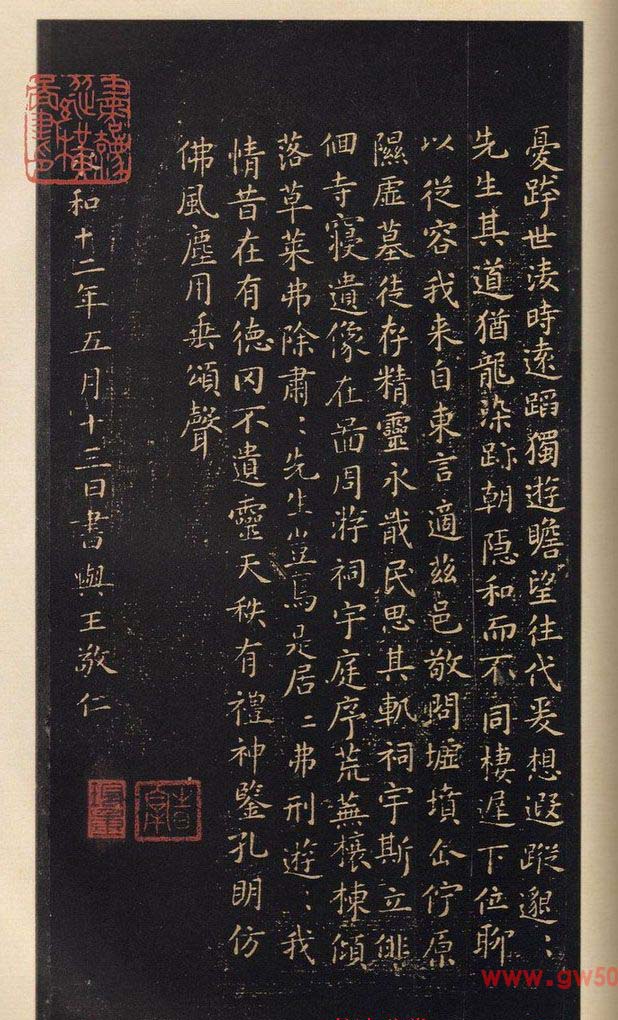 憂跨世凌時遠蹈獨遊瞻望往代爰想遐蹤邈〻
先生其道猶龍染跡朝隱和而不同棲遲下位聊
以從容我来自東言適茲邑敬問墟墳企佇原
隰虛墓徒存精靈永戢民思其軌祠宇斯立俳
佪寺寢遺像在啚周游祠宇庭序荒蕪榱棟傾
落草萊弗除肅〻先生豈焉是居〻弗刑遊〻我
情昔在有德罔不遺靈天秩有禮神鑒孔明仿
佛風塵用垂頌聲
和十二年五月十三日書與王敬仁
www.gw50